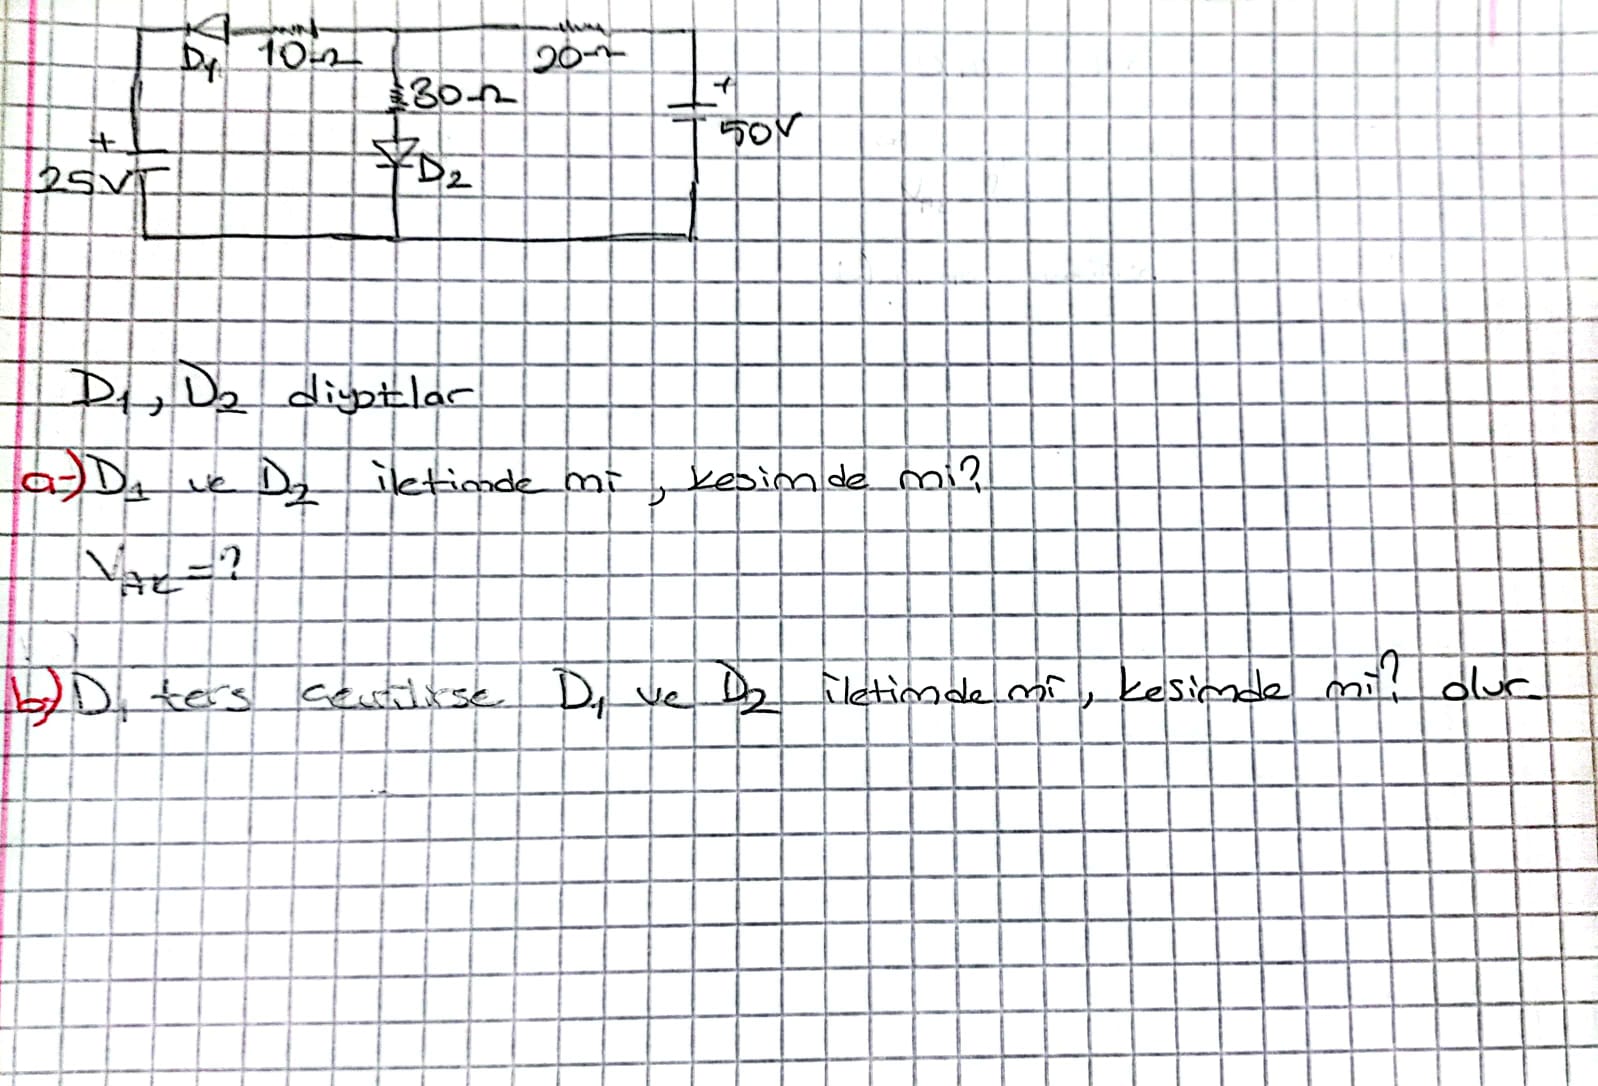 D₁ 10Ω 20Ω
30Ω
+
50V
+
25V
D₂
D₁, D₂ diyotlar
a-) D₁ ve D₂ iletimde mi, kesimde mi?
VAK = ?
b-) D₁ ters çevrilirse D₁ ve D₂ iletimde mi, kesimde mi? olur